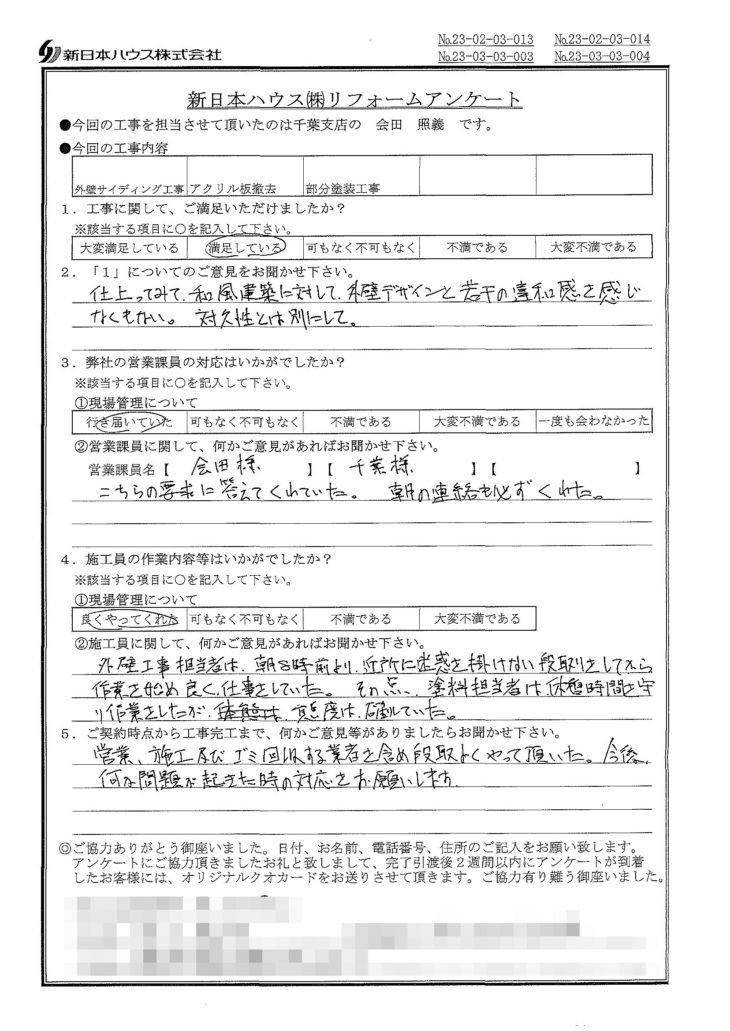 新日本ハウス株式会社
№23-02-03-013 №23-02-03-014
№23-03-03-003 №23-03-03-004
新日本ハウス㈱リフォームアンケート
●今回の工事を担当させて頂いたのは千葉支店の 会田 照義 です。
●今回の工事内容
外壁サイディング工事 アクリル板撤去 部分塗装工事
1．工事に関して、ご満足いただけましたか？
※該当する項目に○を記入して下さい。
大変満足している 満足している 可もなく不可もなく 不満である 大変不満である
2．「1」についてのご意見をお聞かせ下さい。
仕上ってみて、和風建築に対して、外壁デザインと若干の違和感を感じ
なくもない。 対久性とは別にして。
3．弊社の営業課員の対応はいかがでしたか？
※該当する項目に○を記入して下さい。
①現場管理について
行き届いていた 可もなく不可もなく 不満である 大変不満である 一度も会わなかった
②営業課員に関して、何かご意見があればお聞かせ下さい。
営業課員名【 会田様 】【 千葉様 】【 】
こちらの要求に答えてくれていた。 朝の連絡も必ずくれた。
4．施工員の作業内容等はいかがでしたか？
※該当する項目に○を記入して下さい。
①現場管理について
良くやってくれた 可もなく不可もなく 不満である 大変不満である
②施工員に関して、何かご意見があればお聞かせ下さい。
外壁工事担当者は、朝8時前より、近所に迷惑を掛けない段取りをしてから
作業を始め良く仕事をしていた。 その点、塗料担当者は休憩時間を守
り作業をしたが、 態度は
5．ご契約時点から工事完工まで、何かご意見等がありましたらお聞かせ下さい。
営業、施工及びゴミ回収する業者を含め段取よくやって頂いた。今後、
何か問題が起きた時の対応をお願いします。
◎ご協力ありがとう御座いました。日付、お名前、電話番号、住所のご記入をお願い致します。
アンケートにご協力頂きましたお礼と致しまして、完了引渡後2週間以内にアンケートが到着
したお客様には、オリジナルクオカードをお送りさせて頂きます。ご協力有り難う御座いました。